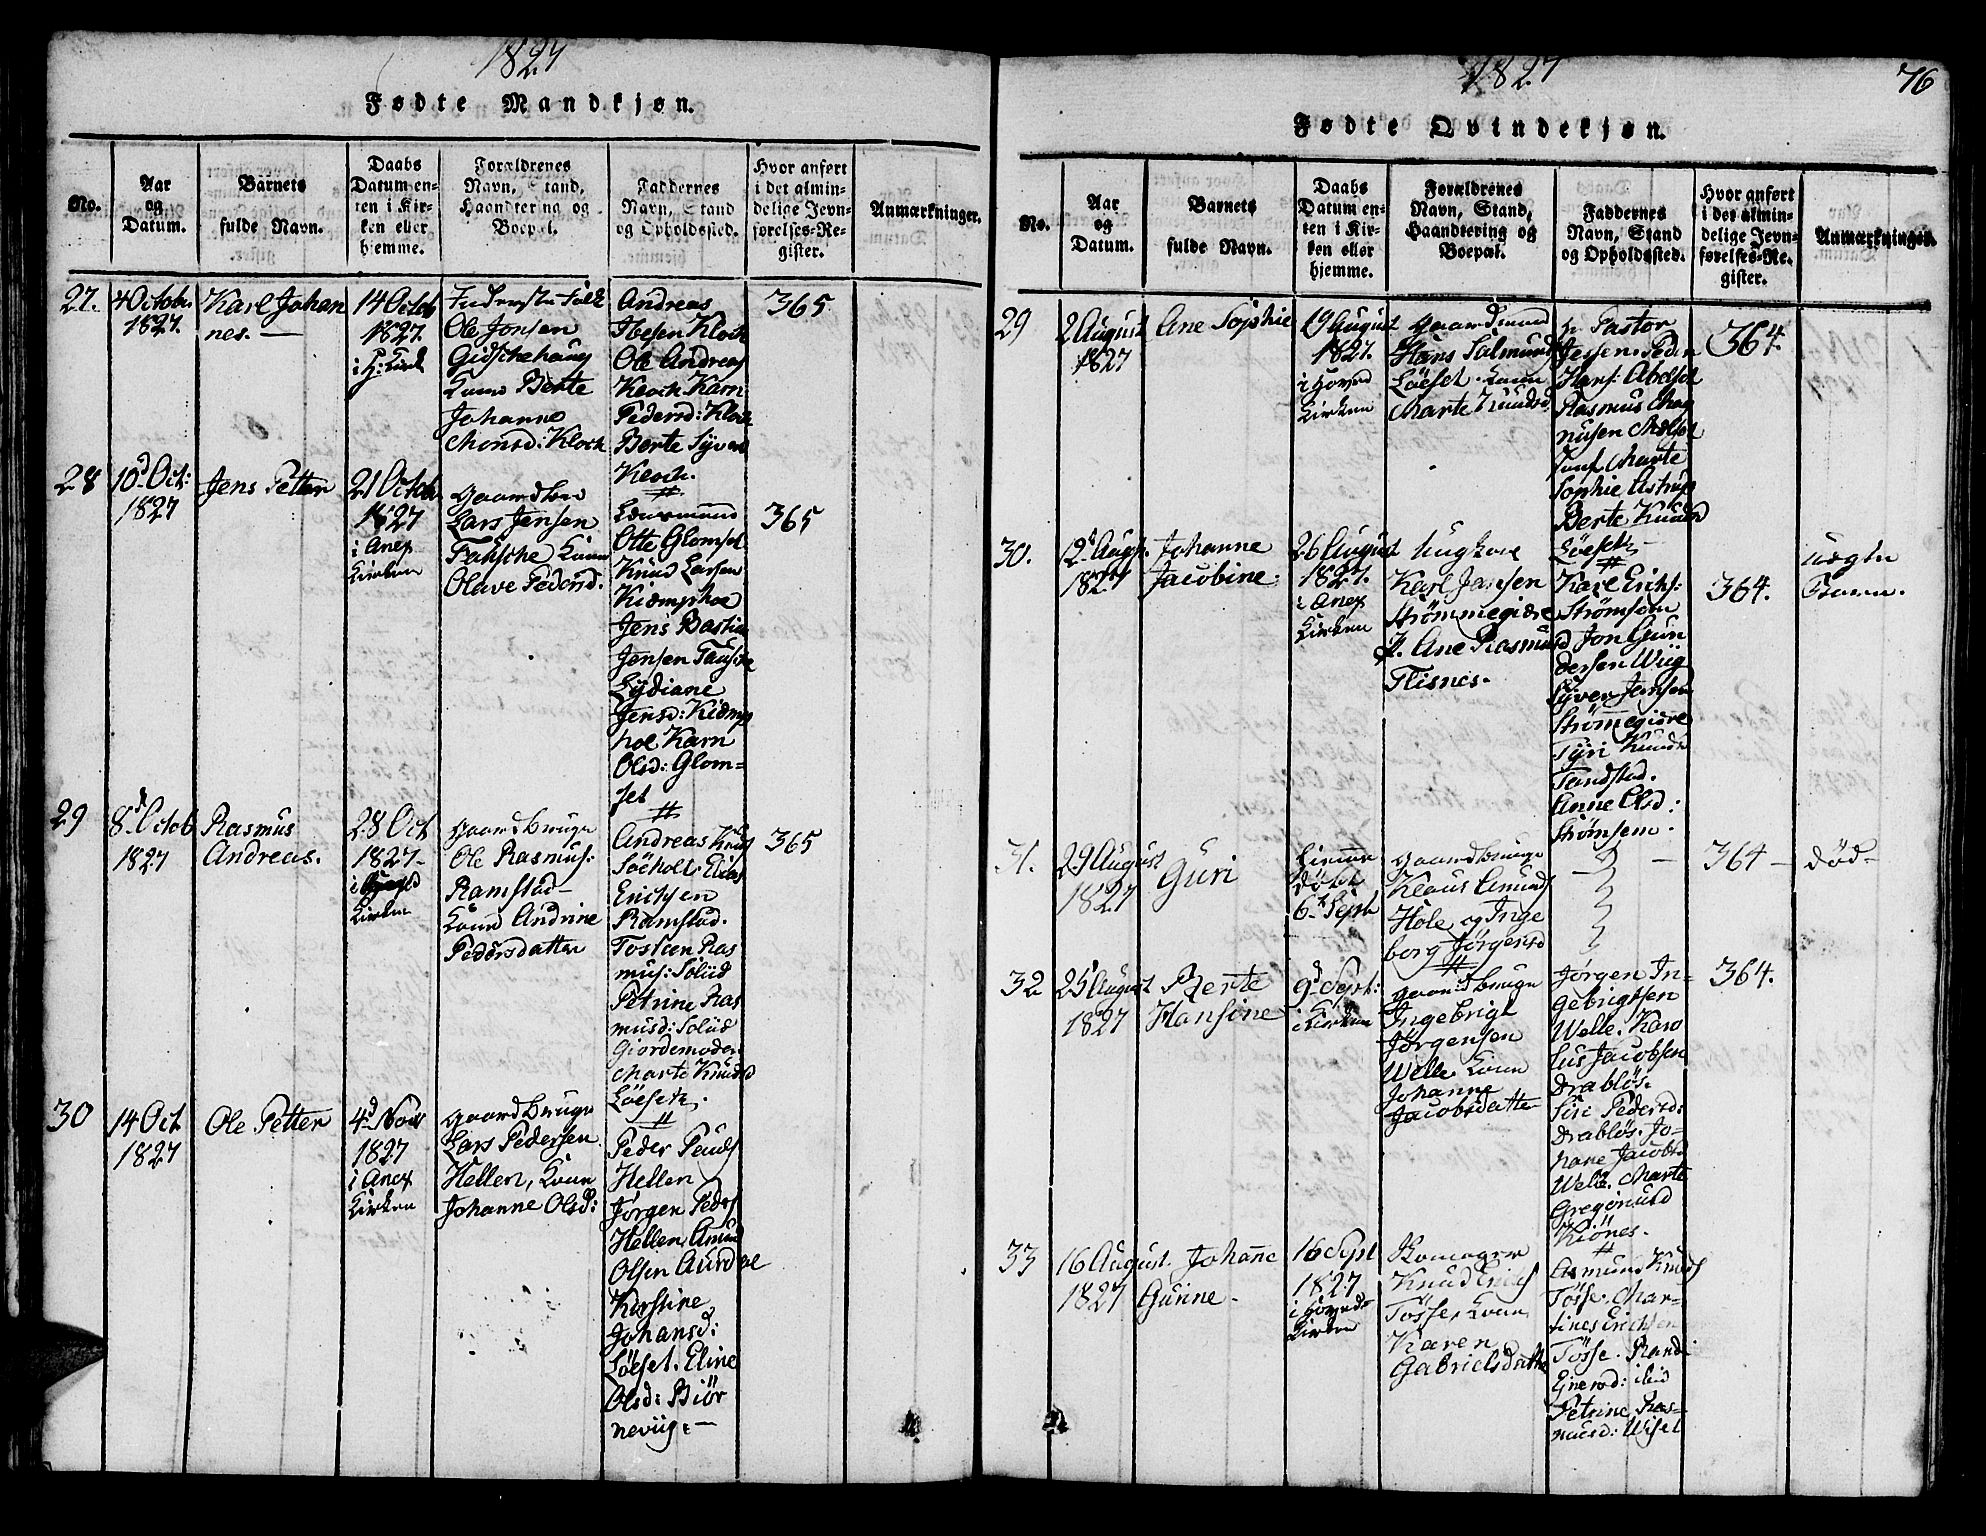 1827
Fødte Mandkjøn.
No.
Aar
og
Datum.
Barnets
fulde Navn.
Daabs
Datum en-
ten i Kir-
ken eller
hjemme.
Forældrenes
Navn, Stand,
Haandtering og
Boepæl.
Faddernes
Navn, Stand
og Opholdssted.
Hvor anført
i det almin-
delige Jevn-
førelses-Re-
gister.
Anmærkninger.
27.
4 Octobr.
1827.
Karl Johan
nes. —
14 Octob
1827.
i H: Kirk
Ole Jonsen
Gidschehaug
Kone Berte
Johanne
Monsd: Kloch
Andreas
Ibesen Kloch
Ole Andreas
Kloch Karn
Pedersd: Kloch
Berte Syvers
Kloch.
365
28
10d Oct:
1827
Jens Petter
21 Octob
1827
i Anex
Kirken
Lars Jensen
Fausche Kone
Olave Pedersd.
Lensmand
Otte Glomset
Knud Larsen
Kiemphoe
Jens Bastian
Jensen Fausche
Lydiane
Jensd: Kiemp
hoe Karn
Olsd: Glom-
set
365
29
8d Octob
1827
Rasmus
Andreas.
28 Oct
1827-
i Hoved
Kirken
Gaardbruger
Ole Rasmus:
Ramstad-
Kone Andrine
Pedersdatter
Andreas Knuds
Søeholt Elias
Erichsen
Ramstad.
Tosten Ras
mus: Solud
Petrine Ras
musd: Solud
Giordemoder
Marte Knudsd
Løeset.
365
30
14 Oct
1827
Ole Petter
4d Nov
1827
i Anex
Kirken
Gaardbruger
Lars Pedersen
Hellen, Kone
Johanne Olsd:
Peder Pauls
Hellen
Jørgen Peders
Hellen Amund
Olsen Aurdoe
Kirstine
Johansd:
Løeset. Eline
Olsd: Biør
neviig. —
1827
76
Fødte Qvindekjøn.
No.
Aar
og
Datum.
Barnets
fulde Navn.
Daabs
Datum en-
ten i Kir-
ken eller
hjemme.
Forældrenes
Navn, Stand,
Haandtering og
Boepæl.
Faddernes
Navn, Stand
og Opholdssted.
Hvor anført
i det almin-
delige Jevn-
førelses-Re-
gister.
Anmærkninger.
29
2 August
1827
Ane Sophie
19 August
1827.
i Hoved
Kirken
Gaardmand
Hans Salmunds
Løeset. Kone
Marte Knudsd
Hr Pastor
Jessen. Peder
Hans: Abelset
Rasmus Mag
nusen Melset
Jomf Marte
Sophie Astrup
Berte Knudsd
Løeset
364.
30.
12d Augst.
1827
Johanne
Jacobine.
26 August
1827.
i Anex
Kirken
Ungkarl
Karl Jansen
Strømmegiære
P. Ane Rasmusd
Flisnes.
Karl Erichs:
Strømsem
Jon Gun
dersen Wiig
Syver Jensen
Strømegiøre
Tyri Knudsd
Tandstad.
Anne Elsd:
Strømsem.
364.
uægte
Barn.
31.
29 August
1827
Guri
hiemme
døbt
6te Septb
Gaardbruger
Klaus Amunds
Hole og Inge
borg Jørgensd
—
364 —
død —
32
25d August
1827
Berte
Hansine
9d Sept:
i Kirken
Gaardbruger
Ingebrigt
Jørgensen
Welle. Kone
Johanne
Jacobsdatter
Jørgen In-
gebrigtsen
Welle. Karo
lus Jacobsen
Drabløs.
Siri Pedersd:
Drabløs. Jo-
hane Jacobsd
Welle. Marte
Gregoriusd
Kiönes.
364.
33
16 August.
1827
Johanne
Gurine -
16 Sept
1827
i Hoved-
Kirken
Knud Erichs
Tösse, Kone
Karen
Gabrielsdatter
Asmund Knuds
Tösse. Mar-
tines Erichsen
Tösse. Rand
Einersd: ibid
Petrine Ras-
musd: Wiset